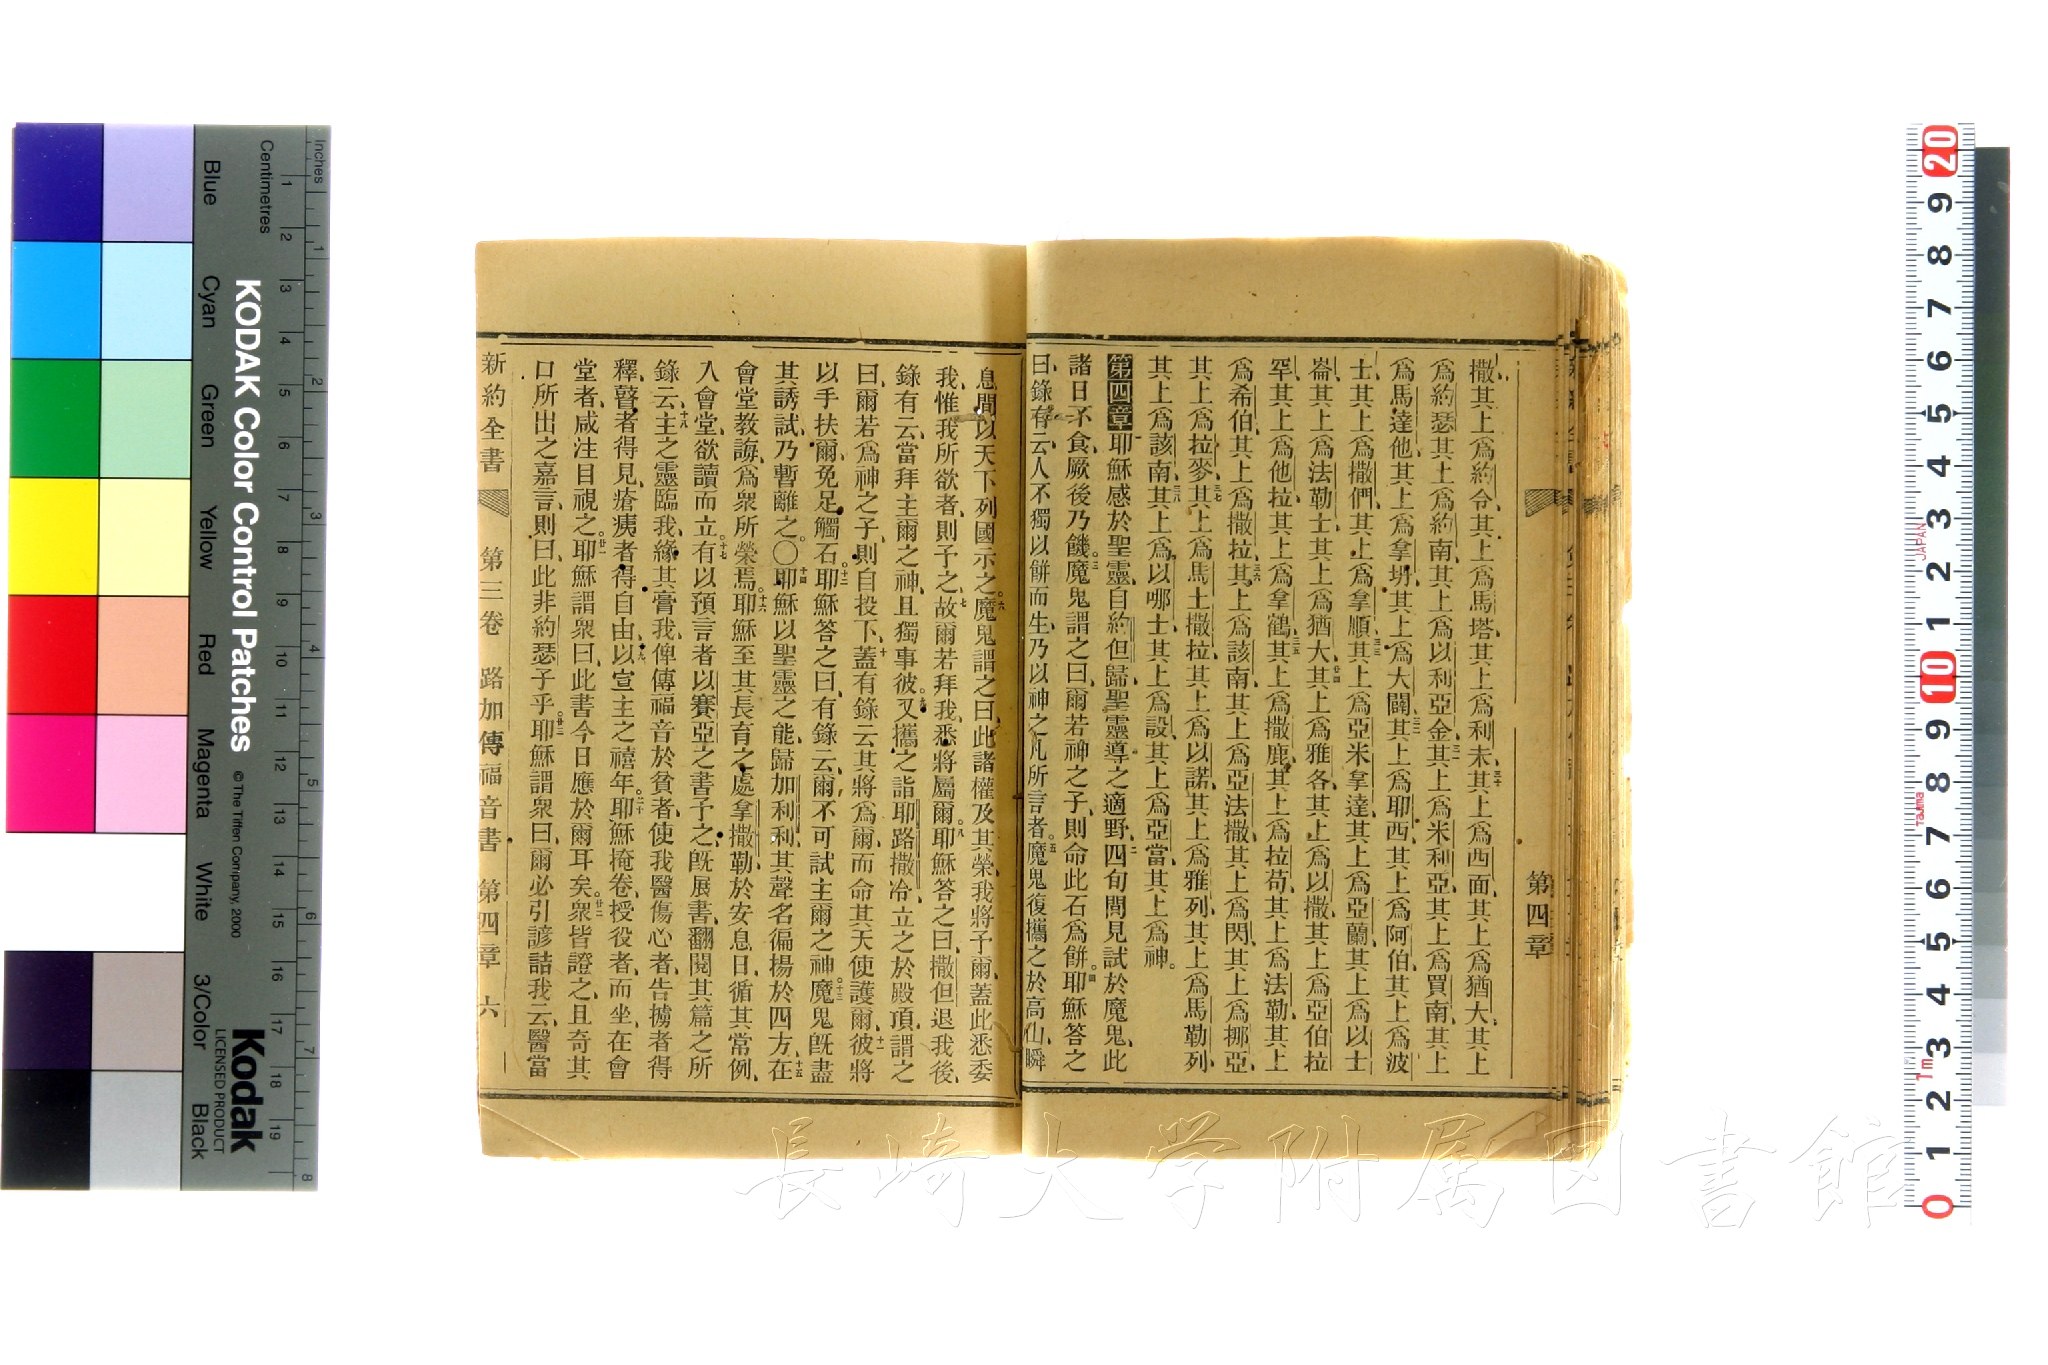 第四章
撒、其上爲約令、其上爲馬塔、其上爲利未、三十其上爲西面、其上爲猶大、其上
爲約瑟、其上爲約南、其上爲以利亞金、三一其上爲米利亞、其上爲買南、其上
爲馬達他、其上爲拿坍、其上爲大闢、三二其上爲耶西、其上爲阿伯、其上爲波
士、其上爲撒們、其上爲拿順、三三其上爲亞米拿達、其上爲亞蘭、其上爲以士
崙、其上爲法勒士、其上爲猶大、卅四其上爲雅各、其上爲以撒、其上爲亞伯拉
罕、其上爲他拉、其上爲拿鶴、三五其上爲撒鹿、其上爲拉苟、其上爲法勒、其上
爲希伯、其上爲撒拉、三六其上爲該南、其上爲亞法撒、其上爲閃、其上爲挪亞、
其上爲拉麥、三七其上爲馬土撒拉、其上爲以諾、其上爲雅列、其上爲馬勒列、
其上爲該南、三八其上爲以哪士、其上爲設、其上爲亞當、其上爲神。
第四章一耶穌感於聖靈、自約但歸、聖靈導之適野、二四旬間見試於魔鬼、此
諸日不食、厥後乃饑。三魔鬼謂之曰、爾若神之子、則命此石爲餅。四耶穌答之
曰、錄有云、人不獨以餅而生、乃以神之凡所言者。五魔鬼復攜之於高山、瞬
息間、以天下列國示之。六魔鬼謂之曰、此諸權及其榮、我將予爾、蓋此悉委
我、惟我所欲者、則予之、七故爾若拜我、悉將屬爾。八耶穌答之曰、撒但退我後、
錄有云、當拜主爾之神、且獨事彼。九又攜之詣耶路撒冷、立之於殿頂、謂之
曰、爾若爲神之子、則自投下、十蓋有錄云、其將爲爾、而命其天使護爾、十一彼將
以手扶爾、免足觸石。十二耶穌答之曰、有錄云、爾不可試主爾之神。十三魔鬼旣盡
其誘試、乃暫離之。〇十四耶穌以聖靈之能歸加利利、其聲名徧揚於四方、十五在
會堂敎誨、爲衆所榮焉。十六耶穌至其長育之處拿撒勒、於安息日、循其常例、
入會堂、欲讀而立、十七有以預言者以賽亞之書予之、旣展書、翻閱其篇之所
錄云、十八主之靈臨我、緣其膏我、俾傳福音於貧者、使我醫傷心者、告擄者得
釋、瞽者得見、瘡痍者得自由、十九以宣主之禧年。二十耶穌掩卷、授役者、而坐、在會
堂者、咸注目視之。廿一耶穌謂衆曰、此書今日應於爾耳矣。廿二衆皆證之、且奇其
口所出之嘉言、則曰、此非約瑟子乎。廿三耶穌謂衆曰、爾必引諺詰我云、醫當
新約全書 第三卷 路加傳福音書 第四章 六
KODAK Color Control Patches © The Tiffen Company, 2000
Kodak
LICENSED PRODUCT
Inches 1 2 3 4 5 6 7 8
Centimetres 1 2 3 4 5 6 7 8 9 10 11 12 13 14 15 16 17 18 19
Blue Cyan Green Yellow Red Magenta White 3/Color Black
20 9 8 7 6 5 4 3 2 1 10 9 8 7 6 5 4 3 2 1 0
JAPAN
Tajima
1m
長崎大学附属図書館